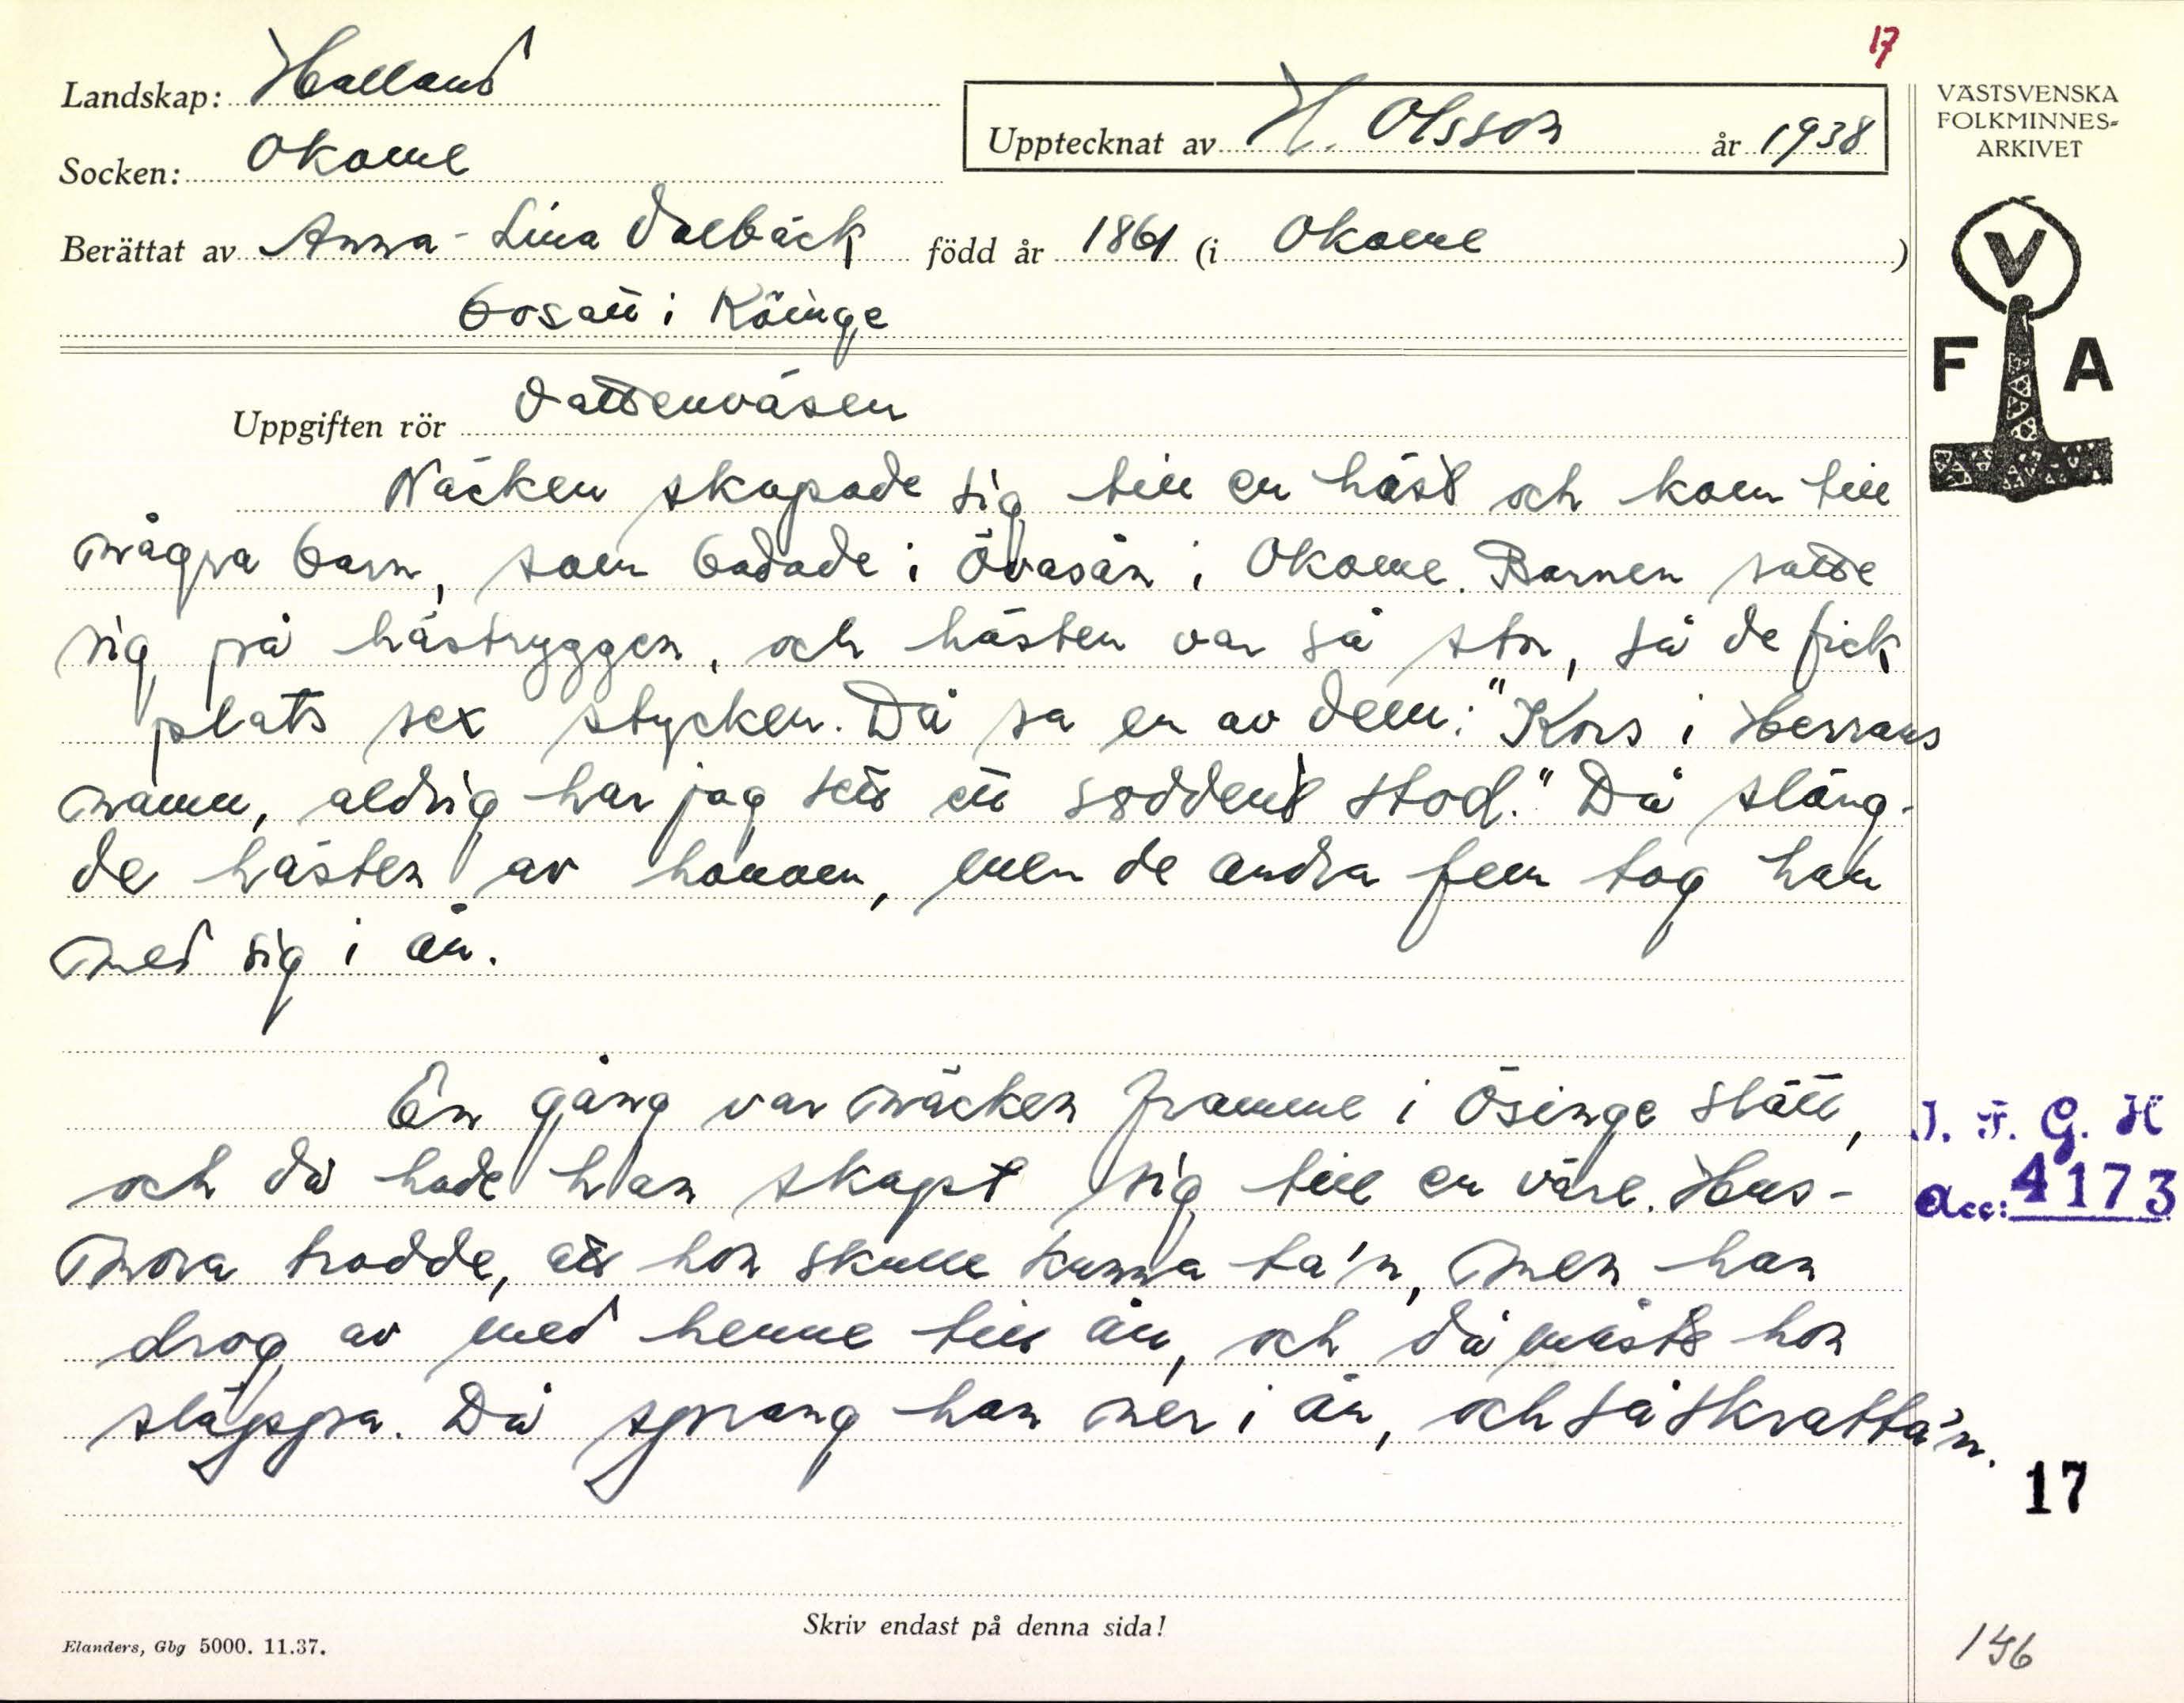 17
Landskap: Halland
Socken: Okome
Upptecknat av H. Olsson år 1938
Berättat av Anna-Lina Valbäck född år 1861 (i Okome)
bosatt i Köinge
VÄSTSVENSKA
FOLKMINNES-
ARKIVET
V
F A
Uppgiften rör Vattenväsen
Näcken skapade sig till en häst och kom till
några barn, som badade i Övasån i Okome. Barnen satte
sig på hästryggen, och hästen var så stor, så de fick
plats sex stycken. Då sa en av dem: "Kors i Herrans
namn, aldrig har jag sett ett soddent stod." Då släng-
de hästen av honom, men de andra fem tog han
med sig i ån.
En gång var näcken framme i Ösinge slätt,
och då hade han skapt sig till en väre. Hus-
mora trodde, att hon skulle kunna ta'n, men han
drog av med henne till ån, och då måste hon
släppa. Då sprang han ner i ån, och så skratta'n.
I. F. G. H
Acc: 4173
17
Skriv endast på denna sida!
Elanders, Gbg 5000. 11.37.
156